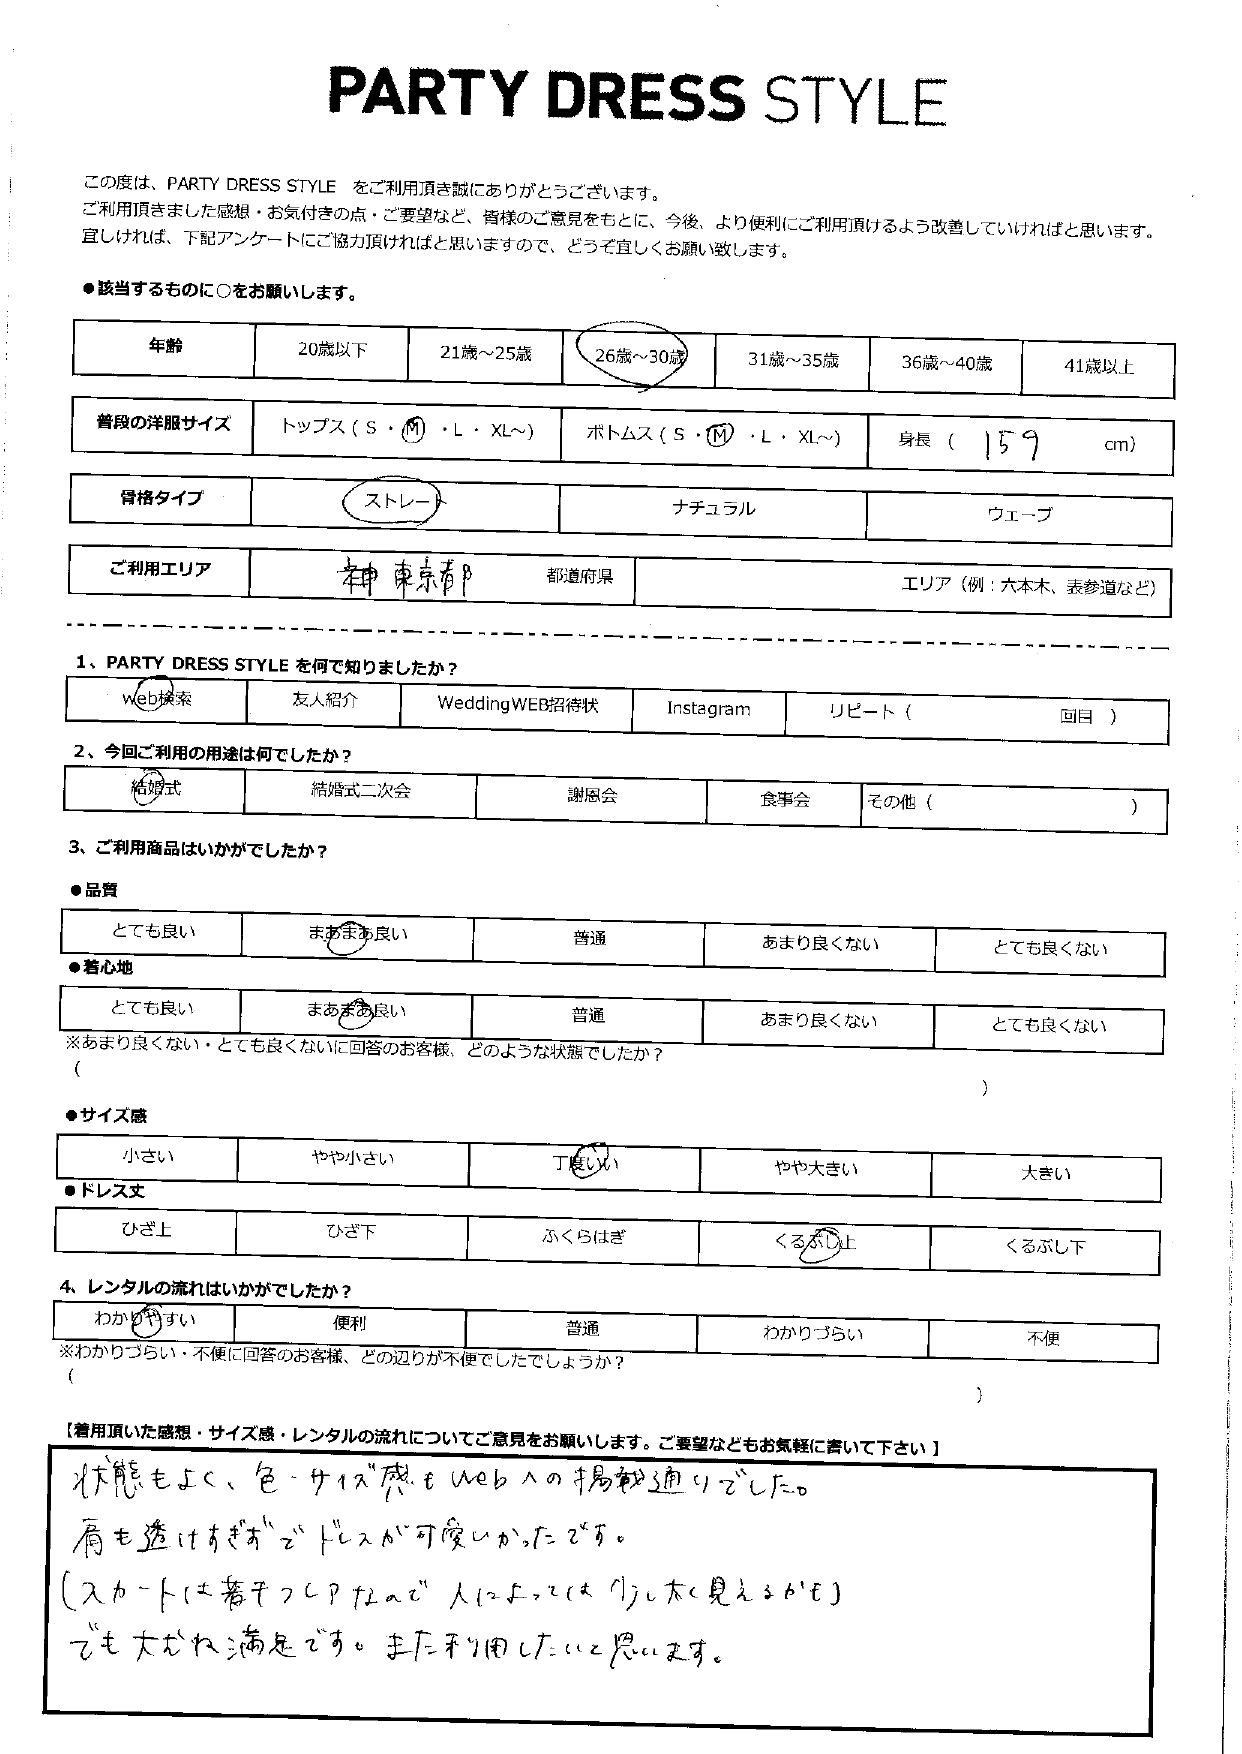 PARTY DRESS STYLE
この度は、PARTY DRESS STYLE をご利用頂き誠にありがとうございます。
ご利用頂きました感想・お気付きの点・ご要望など、皆様のご意見をもとに、今後、より便利にご利用頂けるよう改善していければと思います。
宜しければ、下記アンケートにご協力頂ければと思いますので、どうぞ宜しくお願い致します。
●該当するものに○をお願いします。
年齢 20歳以下 21歳～25歳 26歳～30歳 31歳～35歳 36歳～40歳 41歳以上
普段の洋服サイズ トップス ( S ・ M ・L ・ XL～) ボトムス ( S ・ M ・L ・ XL～) 身長 ( 159 cm)
骨格タイプ ストレート ナチュラル ウェーブ
ご利用エリア 神 東京都 都道府県 エリア（例：六本木、表参道など）
1、PARTY DRESS STYLE を何で知りましたか？
web検索 友人紹介 WeddingWEB招待状 Instagram リピート ( 回目 )
2、今回ご利用の用途は何でしたか？
結婚式 結婚式二次会 謝恩会 食事会 その他 ( )
3、ご利用商品はいかがでしたか？
●品質
とても良い まあまあ良い 普通 あまり良くない とても良くない
●着心地
とても良い まあまあ良い 普通 あまり良くない とても良くない
※あまり良くない・とても良くないに回答のお客様、どのような状態でしたか？
( )
●サイズ感
小さい やや小さい 丁度いい やや大きい 大きい
●ドレス丈
ひざ上 ひざ下 ふくらはぎ くるぶし上 くるぶし下
4、レンタルの流れはいかがでしたか？
わかりやすい 便利 普通 わかりづらい 不便
※わかりづらい・不便に回答のお客様、どの辺りが不便でしたでしょうか？
( )
【着用頂いた感想・サイズ感・レンタルの流れについてご意見をお願いします。ご要望などもお気軽に書いて下さい 】
状態もよく、色・サイズ感もwebへの掲載通りでした。
肩も透けすぎずでドレスが可愛いかったです。
(スカートは若干フレアなので人によっては少し太く見えるかも)
でも大むね満足です。また利用したいと思います。